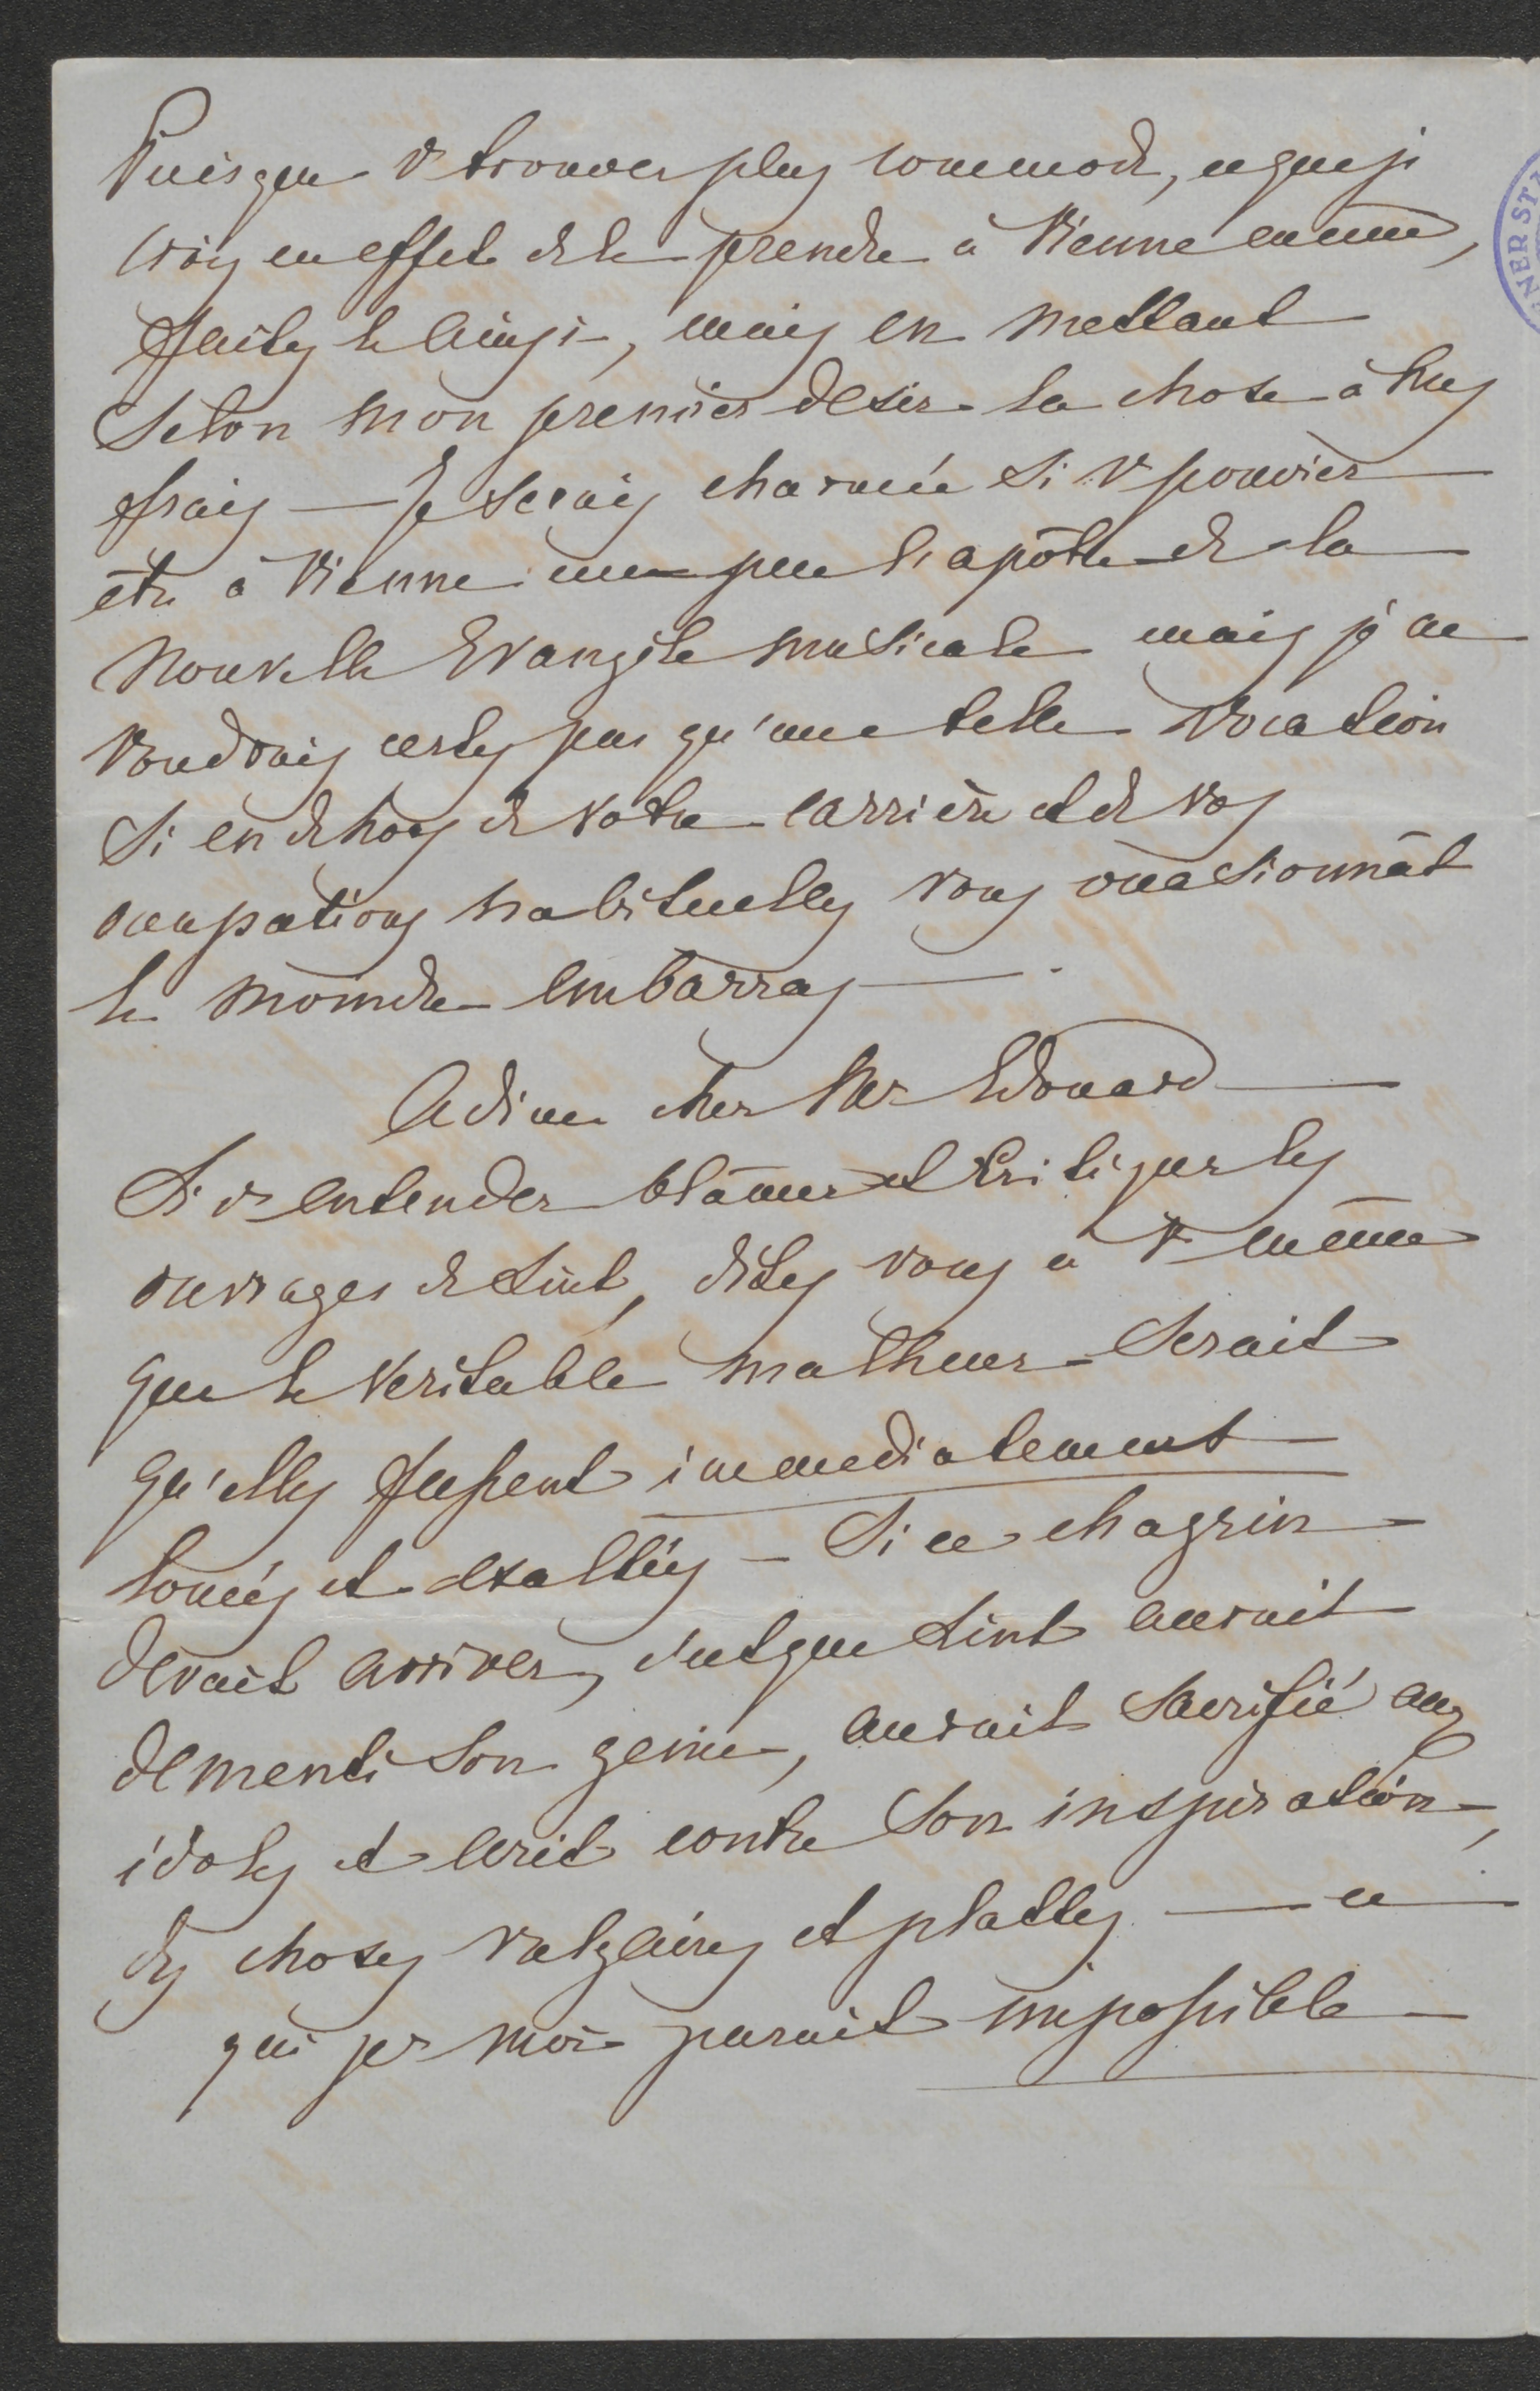 Puisque v trouvez plus commode, ce que je
crois en effet de le prendre à Vienne même,
faites le ainsi, mais en mettant
selon mon premier desir la chose à mes
frais — Je serais charmée si v pouviez
être à Vienne un peu l'apôtre de la
Nouvelle Evangile musicale mais je ne
voudrais certes pas qu'une telle vocation
si en dehors de votre carrière et de vos
occupations habituelles vous occasionnât
le moindre embarras — .
Adieu cher Mr Edouard —
Si v entendez blâmer et critiquer les
ouvrages de Liszt, dites vous à v même
que le veritable malheur serait
qu'elles fussent immediatement
loués et exaltés — Si ce chagrin
devait arriver, c'est que Liszt aurait
dementi son genie, aurait sacrifié aux
idoles et écrit contre son inspiration,
des choses vulgaires et plattes — ce
qui pr moi parait impossible —
NER ST